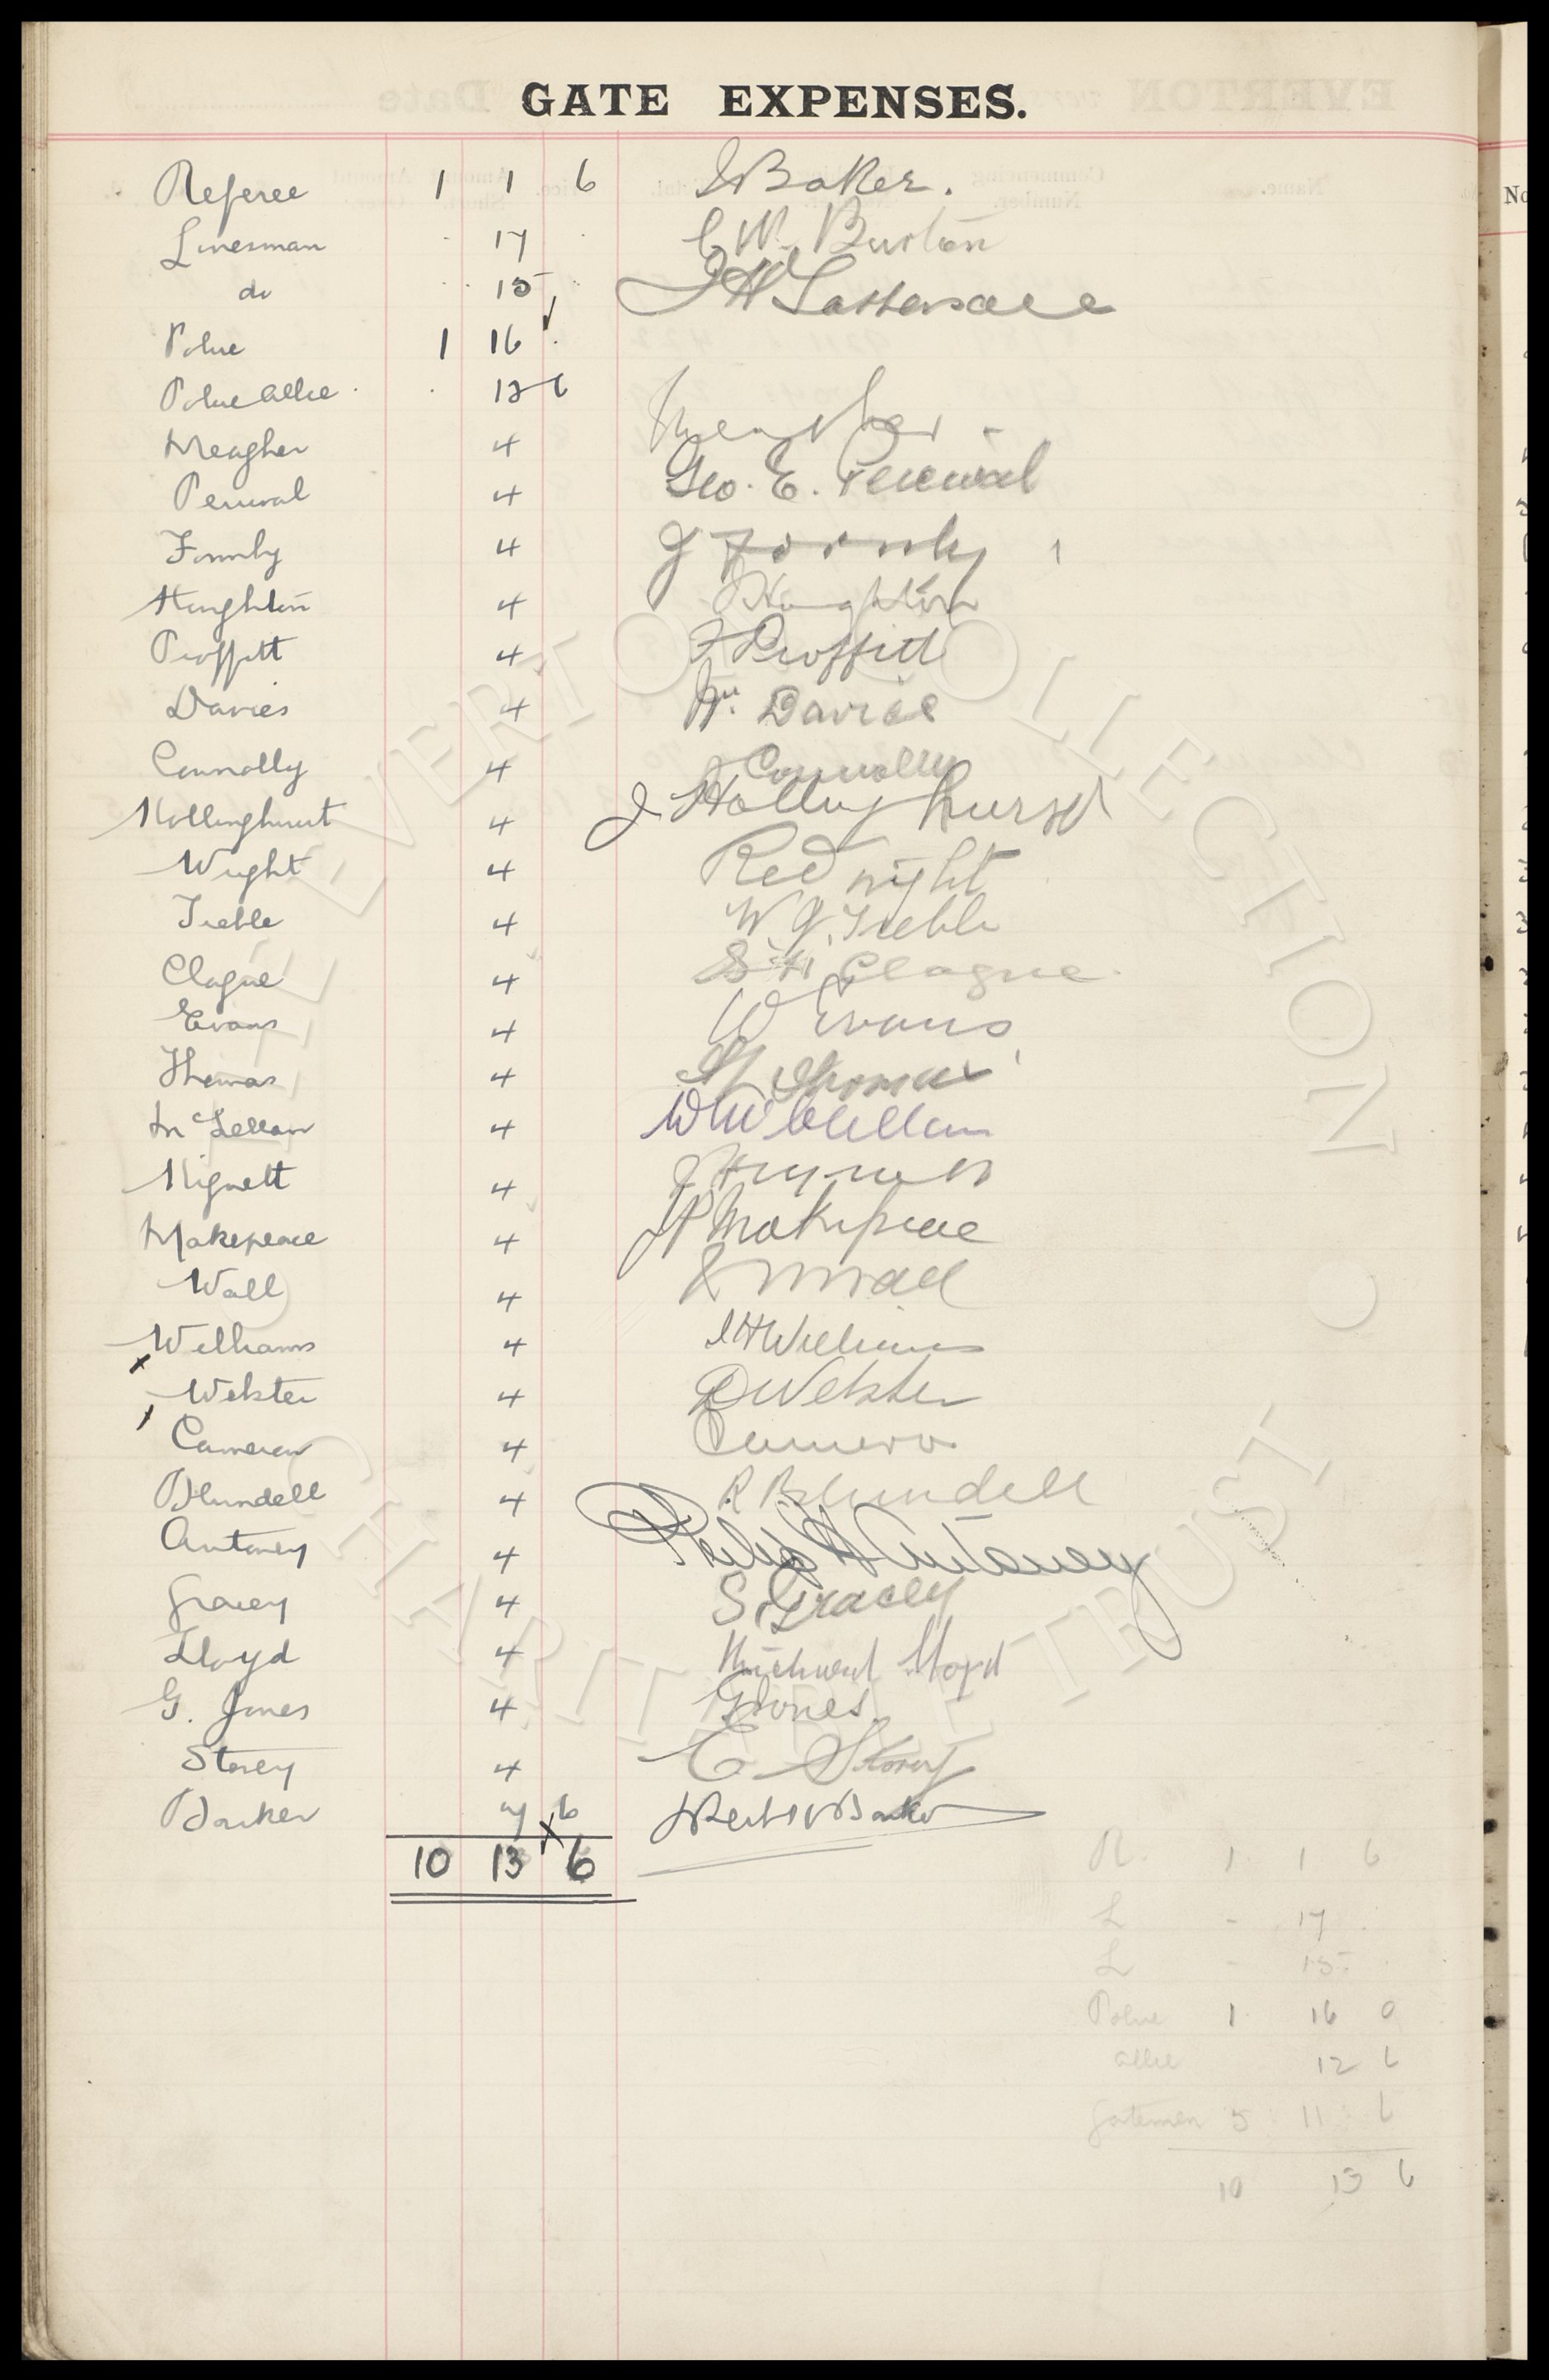 GATE EXPENSES.
Referee 1 1 6 J Baker.
Linesman - 17 . C W. Burton
do - 15 . J H
Police 1 16 .
Police Allce . 12 6
Meagher 4 Meagher
Percival 4 Geo. E. Percival
Formby 4 J Formby
Houghton 4 J Houghton
Proffitt 4 J Proffitt
Davies 4 Wm. Davies
Connolly 4 J Connolly
Hollinghurst 4 J Hollinghurst
Wright 4 Wright
Treble 4 W. J. Treble
Clague 4 S. H. Clague
Evans 4 W Evans
Thomas 4 Thomas
McLellan 4 W McClellan
Hignett 4 J Hignett
Makepeace 4 Makepeace
Wall 4 Wall
Williams 4 J H Williams
x Webster 4 D Webster
Cameron 4 Cameron
Blundell 4 R Blundell
Antoney 4 Philip H Antoney
Gracey 4 S. Gracey
Lloyd 4 Michael Lloyd
G. Jones 4 G Jones.
Storey 4 E Storey
Barker 7 6 Barker
10 13 6
R. 1 1 6
L - 17 .
L - 15 .
Police 1 16 0
Allce 12 6
Gatemen 5 11 6
10 13 6
EVERTON COLLECTION CHARITABLE TRUST
No